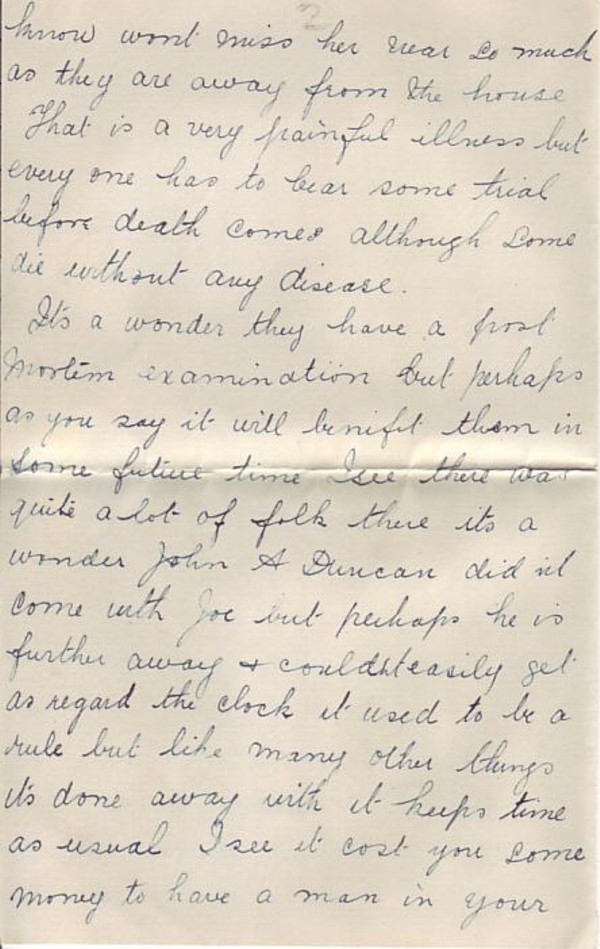 2
know wont miss her near so much
as they are away from the house
That is a very painful illness but
every one has to bear some trial
before death comes although some
die without any disease.
It's a wonder they have a post
Mortem examination but perhaps
as you say it will benifit them in
some future time I see there was
quite a lot of folk there its a
wonder John A Duncan did nt
come with Joe but perhaps he is
further away & couldnt easily get
as regard the clock it used to be a
rule but like many other things
it's done away with it keeps time
as usual I see it cost you some
money to have a man in your